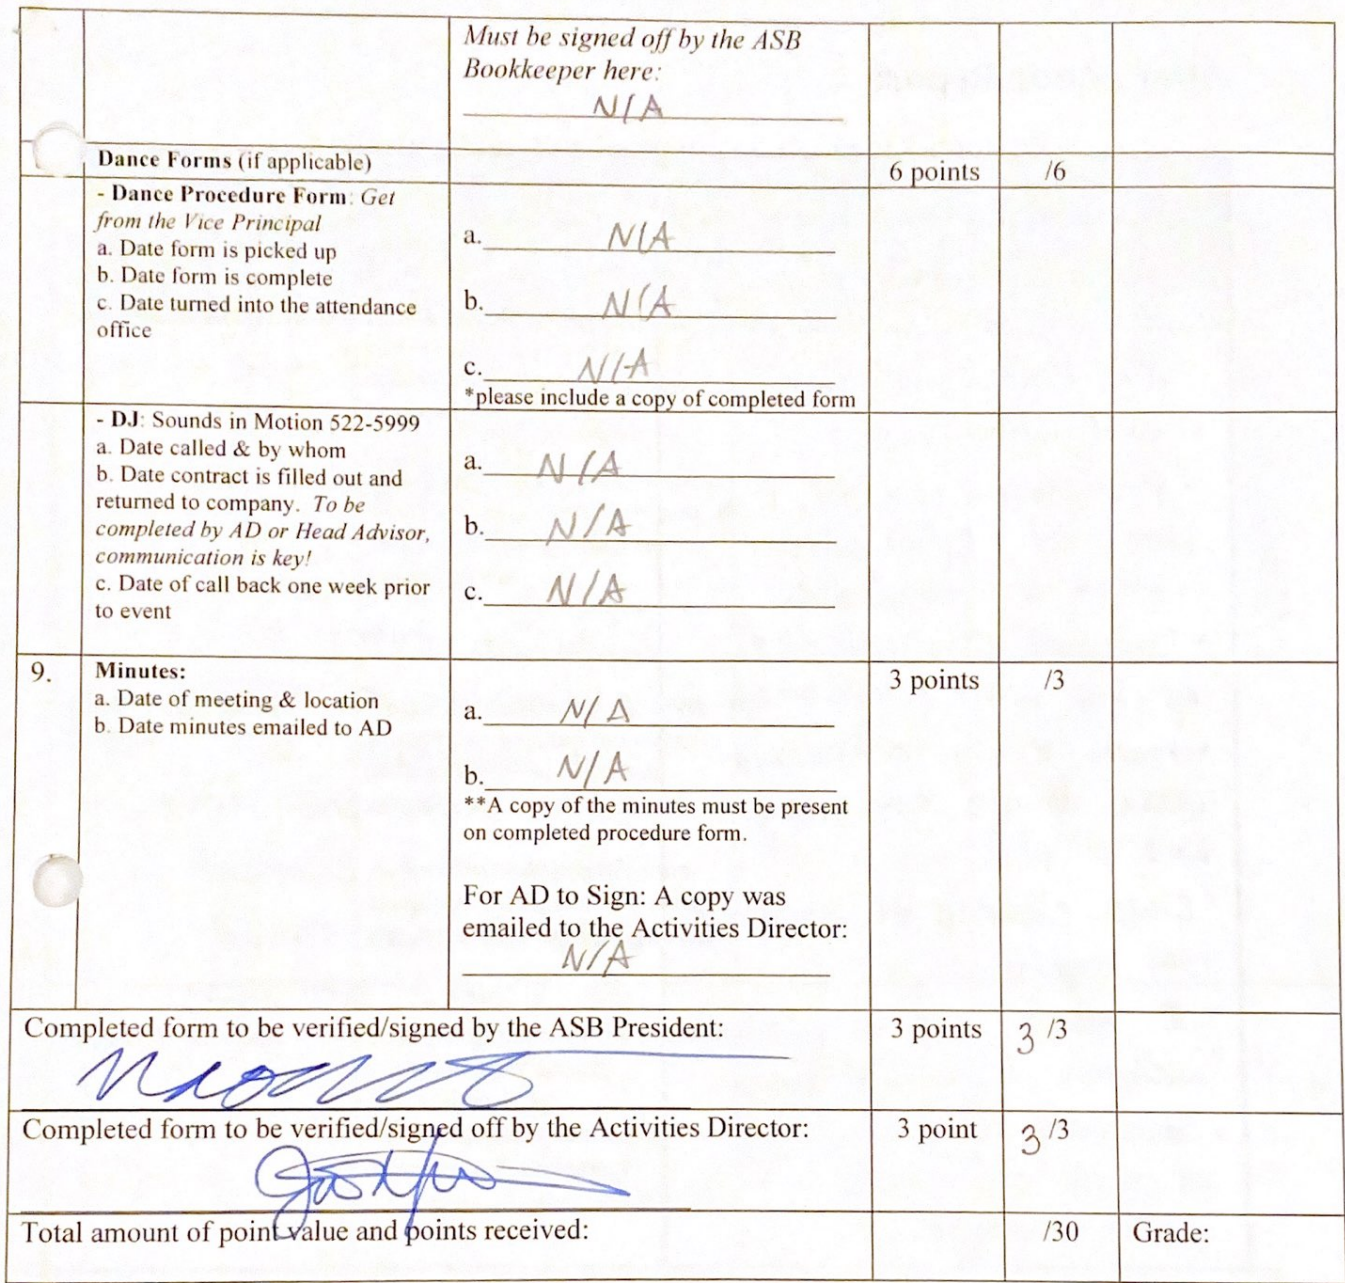 Must be signed off by the ASB
Bookkeeper here:
N/A
Dance Forms (if applicable)
6 points
/6
- Dance Procedure Form: Get
from the Vice Principal
a. Date form is picked up
b. Date form is complete
c. Date turned into the attendance
office
a. N/A
b. N/A
c. N/A
*please include a copy of completed form
- DJ: Sounds in Motion 522-5999
a. Date called & by whom
b. Date contract is filled out and
returned to company. To be
completed by AD or Head Advisor,
communication is key!
c. Date of call back one week prior
to event
a. N/A
b. N/A
c. N/A
9.
Minutes:
a. Date of meeting & location
b. Date minutes emailed to AD
a. N/A
b. N/A
**A copy of the minutes must be present
on completed procedure form.
For AD to Sign: A copy was
emailed to the Activities Director:
N/A
3 points
/3
Completed form to be verified/signed by the ASB President:
3 points
3 /3
Completed form to be verified/signed off by the Activities Director:
3 point
3 /3
Total amount of point value and points received:
/30
Grade: